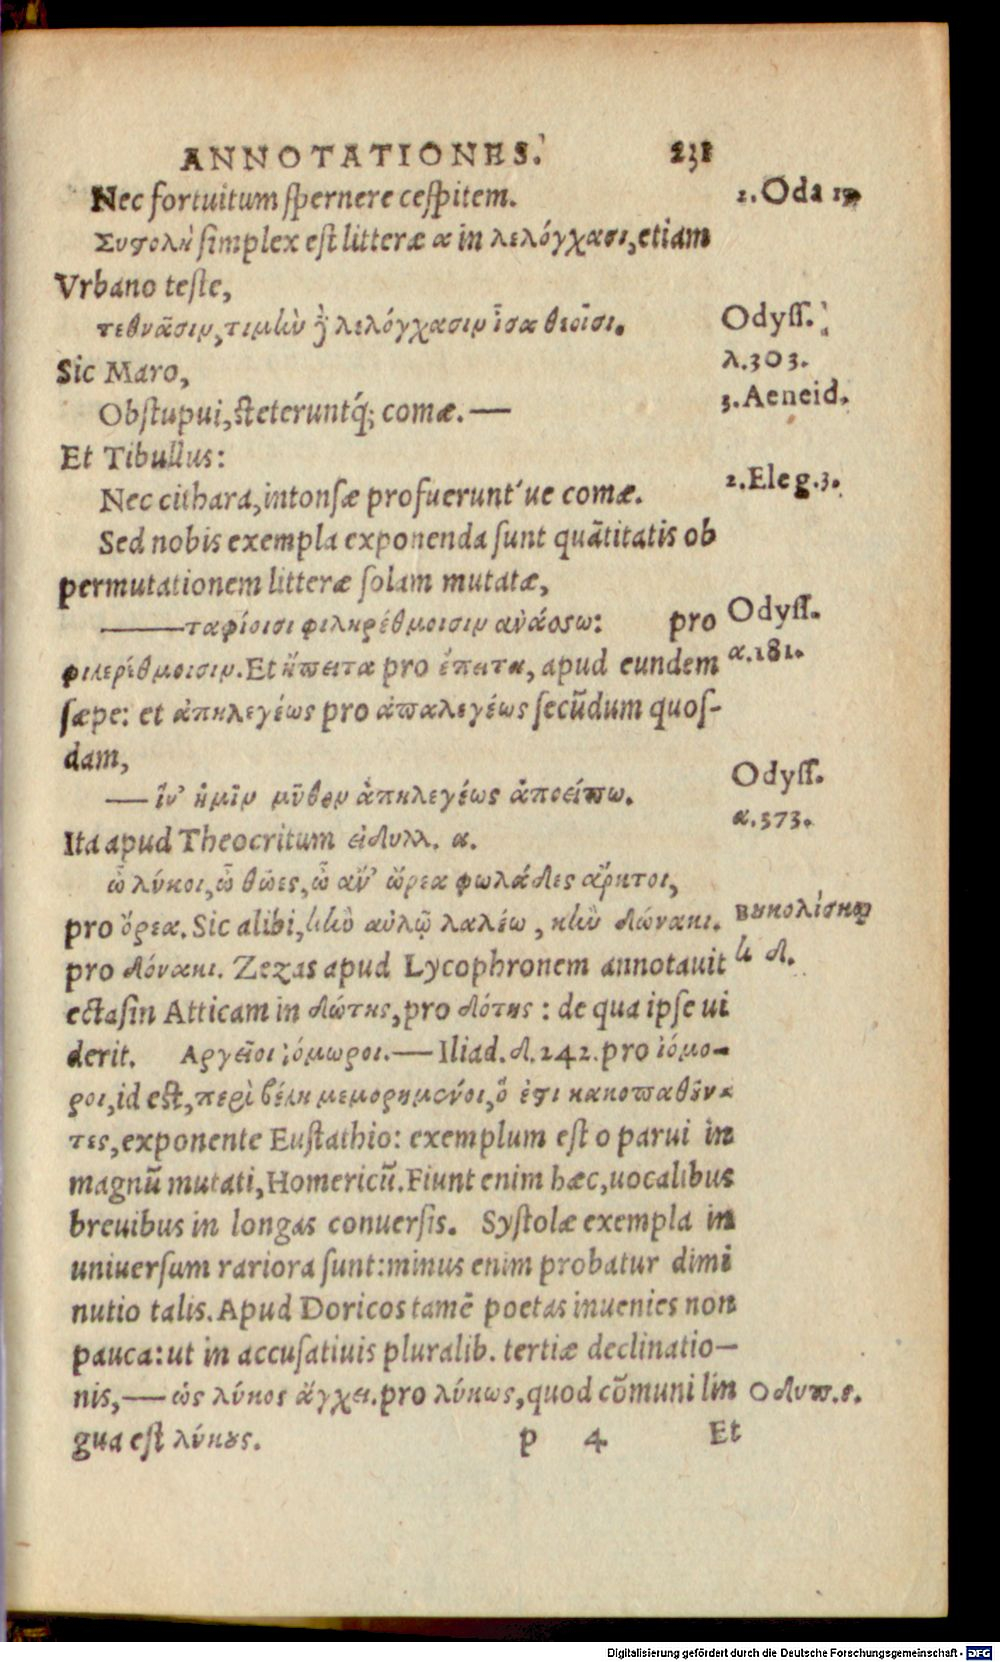 ANNOTATIONES. 231
Nec fortuitum spernere cespitem. 2. Oda 15
Συστολὴ simplex est litteræ α in λελόγχασι, etiam
Vrbano teste,
τεθνᾶσιν, τιμὴν ἢ λελόγχασιν ἶσα θεοῖσι. Odyss.
λ.303.
Sic Maro,
Obstupui, steteruntq́; comæ. — 3. Aeneid.
Et Tibullus:
Nec cithara, intonsæ profuerunt'ue comæ. 2. Eleg.3.
Sed nobis exempla exponenda sunt quãtitatis ob
permutationem litteræ solam mutatæ,
—ταφίοισι φιληρέθμοισιν ἀνάσσω: pro Odyss.
α.181.
φιλερέθμοισιν. Et ἤπειτα pro ἔπειτα, apud eundem
sæpe: et ἀπηλεγέως pro ἀπαλεγέως secũdum quos-
dam,
— ἵν' ἡμῖν μῦθον ἀπηλεγέως ἀποείπω. Odyss.
α.373.
Ita apud Theocritum εἰδυλλ. α.
ὦ λύκοι, ὦ θῶες, ὦ ἀν' ὤρεα φωλάδες ἄρκτοι,
pro ὄρεα. Sic alibi, κἢν αὐλῷ λαλέω, κἢν δώνακι. βουκολίσκῳ
pro δόνακι. Zezas apud Lycophronem annotauit
ectasin Atticam in δώτης, pro δότης : de qua ipse ui
derit. Αργεῖοι ἰόμωροι.— Iliad. δ.242. pro ἰόμο-
ροι, id est, περὶ βέλη μεμορημένοι, ὅ ἐστι κακοπαθοῦν-
τες, exponente Eustathio: exemplum est o parui in
magnũ mutati, Homericũ. Fiunt enim hæc, uocalibus
breuibus in longas conuersis. Systolæ exempla in
uniuersum rariora sunt: minus enim probatur dimi
nutio talis. Apud Doricos tamẽ poetas inuenies non
pauca: ut in accusatiuis pluralib. tertiæ declinatio—
nis,— ὡς λύκος ἄγχει. pro λύκως, quod cõmuni lin
gua est λύκους. p 4 Et
Digitalisierung gefördert durch die Deutsche Forschungsgemeinschaft - DFG